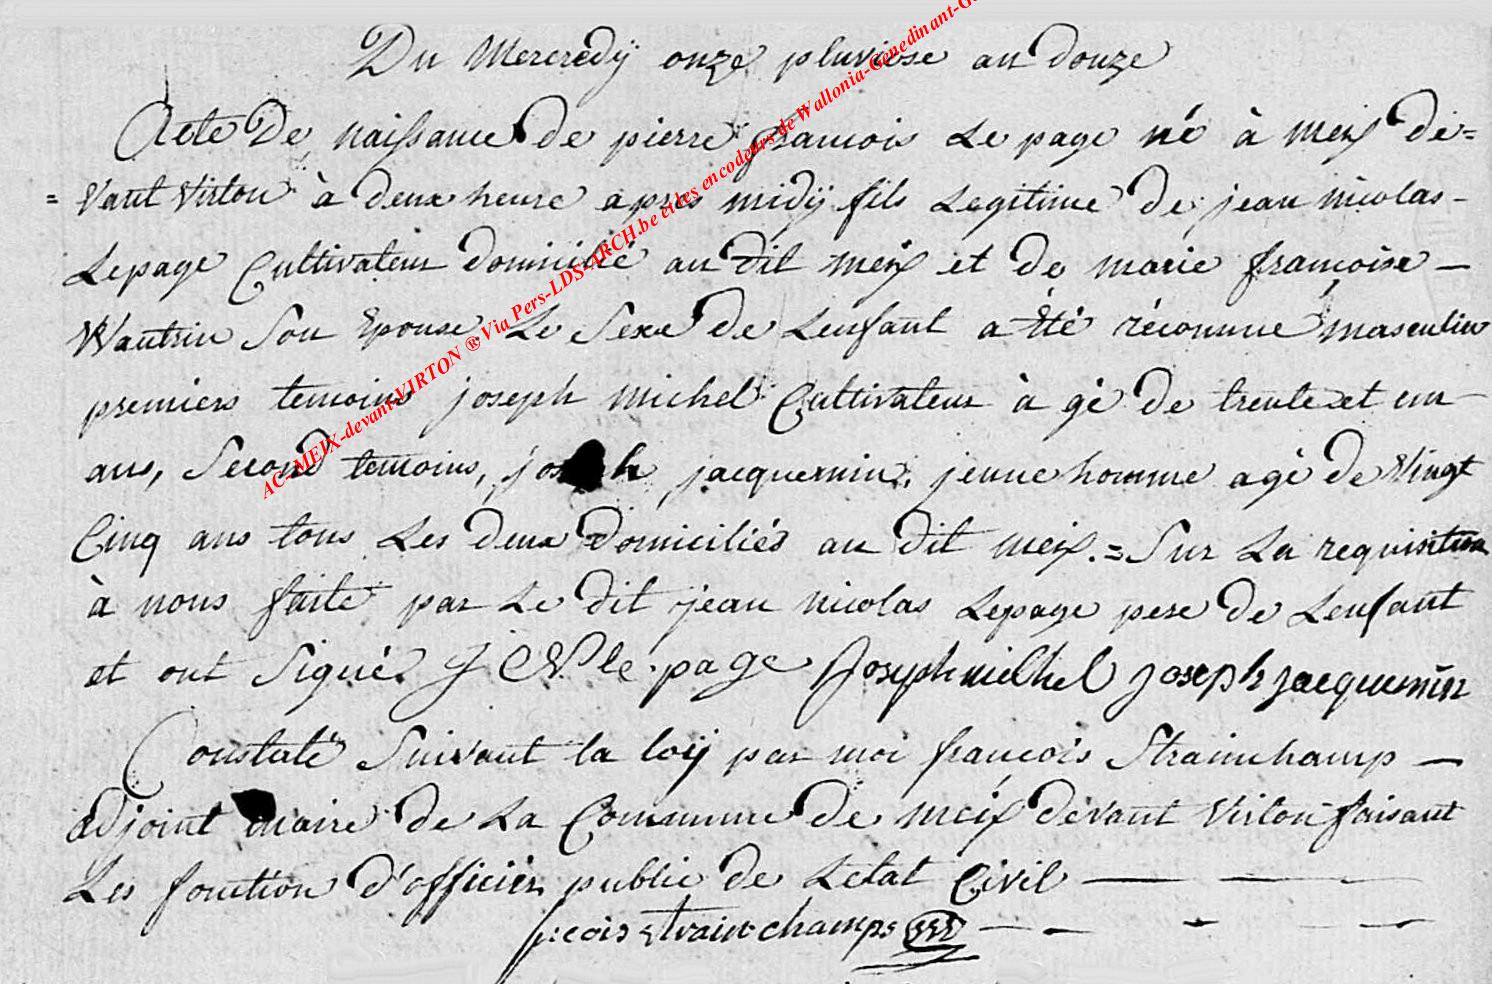 Du Mercredÿ onze pluviose an douze
Acte De naissance de pierre francois Le page né à meix de=
= vant virton à deux heure apres midÿ fils Legitime De jean nicolas -
Lepage Cultivateur domicilié au dit meix et de marie françoise -
Wautrin Son Epouse Le Sexe de Lenfant a Eté réconnue masculin
premiers temoins joseph michel Cultivateur à gé De trente et un
ans, Second temoins, joseph jacquemin, jeune homme agé de Vingt
Cinq ans tous Les deux Domiciliés au dit meix. = Sur La requisition
à nous faite par Le dit jean nicolas Lepage pere de Lenfant
et ont Signé. J N le page Joseph michel joseph jacquemin
Constaté Suivant la loÿ par moi francois Strainchamp -
adjoint maire de La Commune de meix devant Virton faisant
Les fonction d'officier public de Letat Civil
fcois strainchamps
AC-MEIX-devant-VIRTON ® Via Pers-LDS-ARCH.be et les encodeurs de Wallonia-Genedinant-G